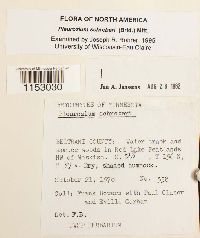 FLORA OF NORTH AMERICA
Pleurozium schreberi (Brid.) Mitt.
Examined by Joseph R. Rohrer, 1995
University of Wisconsin-Eau Claire
1153030
Jan A. Janssens AUG 28 1992
BRYOPHYTES OF MINNESOTA
Pleurozium schreberi
BELTRAMI COUNTY: Water track and
woods in Red Lake Peatlands
NW of Waskish. T 156 N,
Dry, shaded hummock.
October 21, 1970 No. 558
Coll: Frank Bowers with Paul Glaser
and Eville Gorham
Det: F.B.